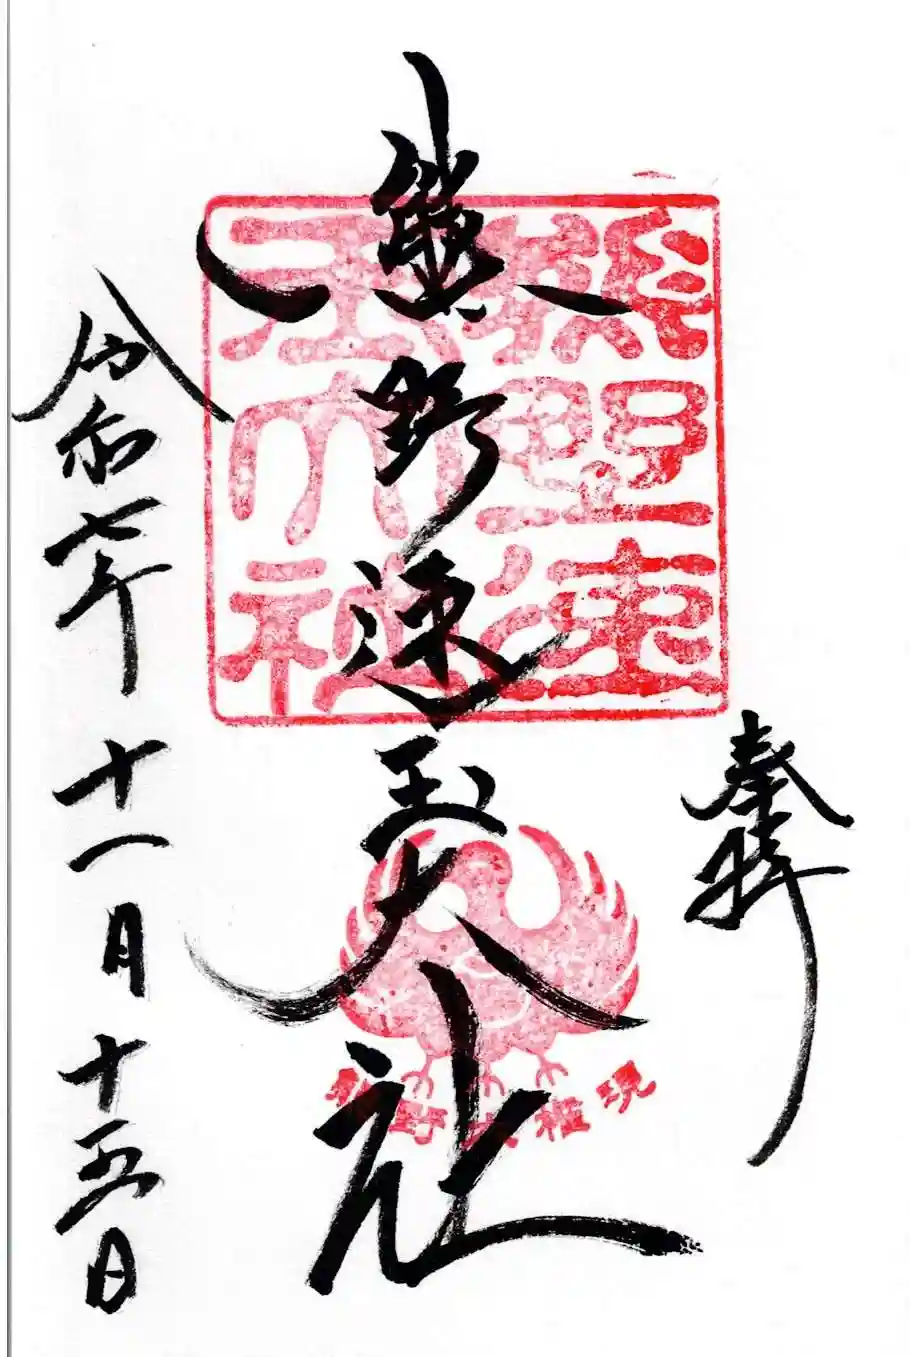 奉拝
熊野速玉大社
熊野速
玉大社
熊野大権現
令和七年十一月十五日